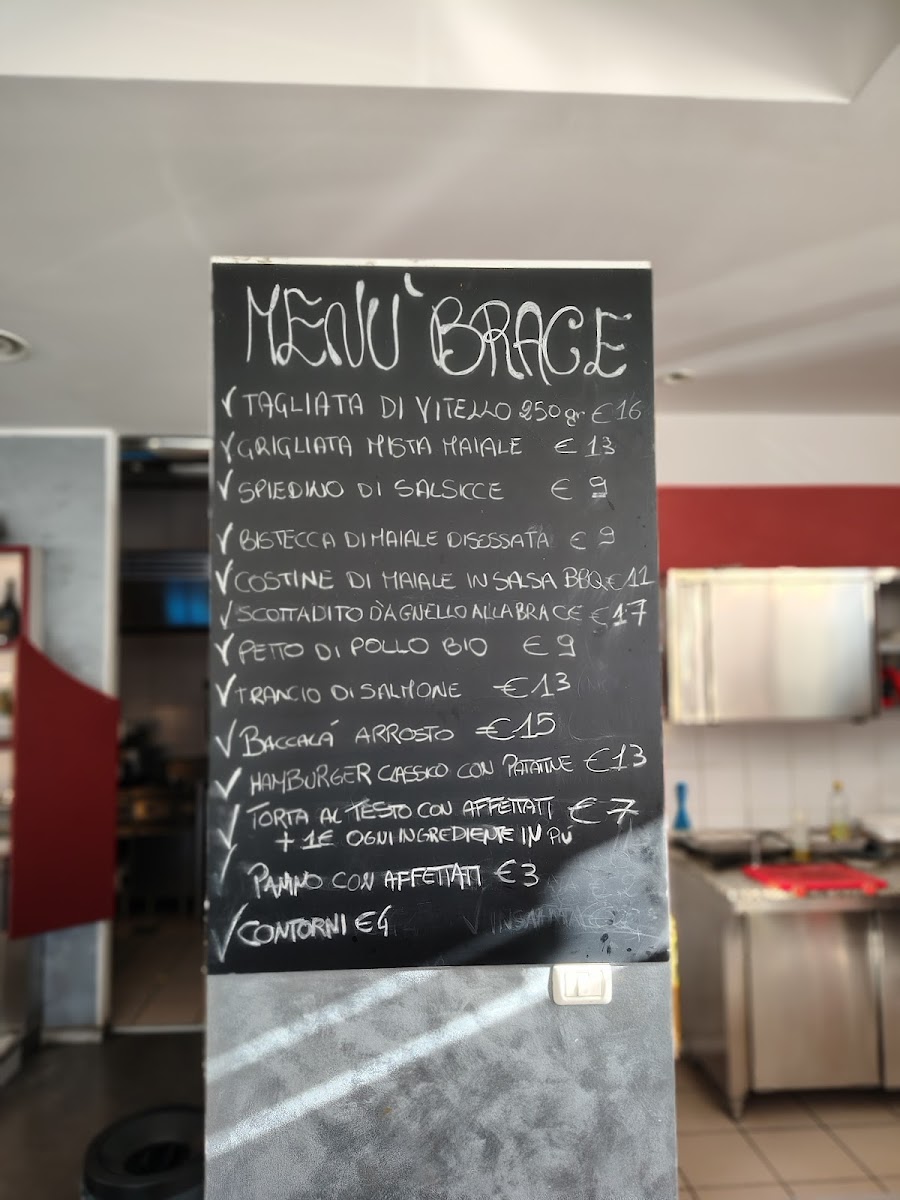 MENU' BRACE
✓ TAGLIATA DI VITELLO 250 gr € 16
✓ GRIGLIATA MISTA MAIALE € 13
✓ SPIEDINO DI SALSICCE € 9
✓ BISTECCA DI MAIALE DISOSSATA € 9
✓ COSTINE DI MAIALE IN SALSA BBQ € 11
✓ SCOTTADITO D'AGNELLO ALLA BRACE € 17
✓ PETTO DI POLLO BIO € 9
✓ TRANCIO DI SALMONE € 13
✓ BACCALÁ ARROSTO € 15
✓ HAMBURGER CLASSICO CON PATATINE € 13
✓ TORTA AL TESTO CON AFFETTATI € 7
✓ + 1€ OGNI INGREDIENTE IN PIÚ
✓ PANINO CON AFFETTATI € 3
✓ CONTORNI € 4